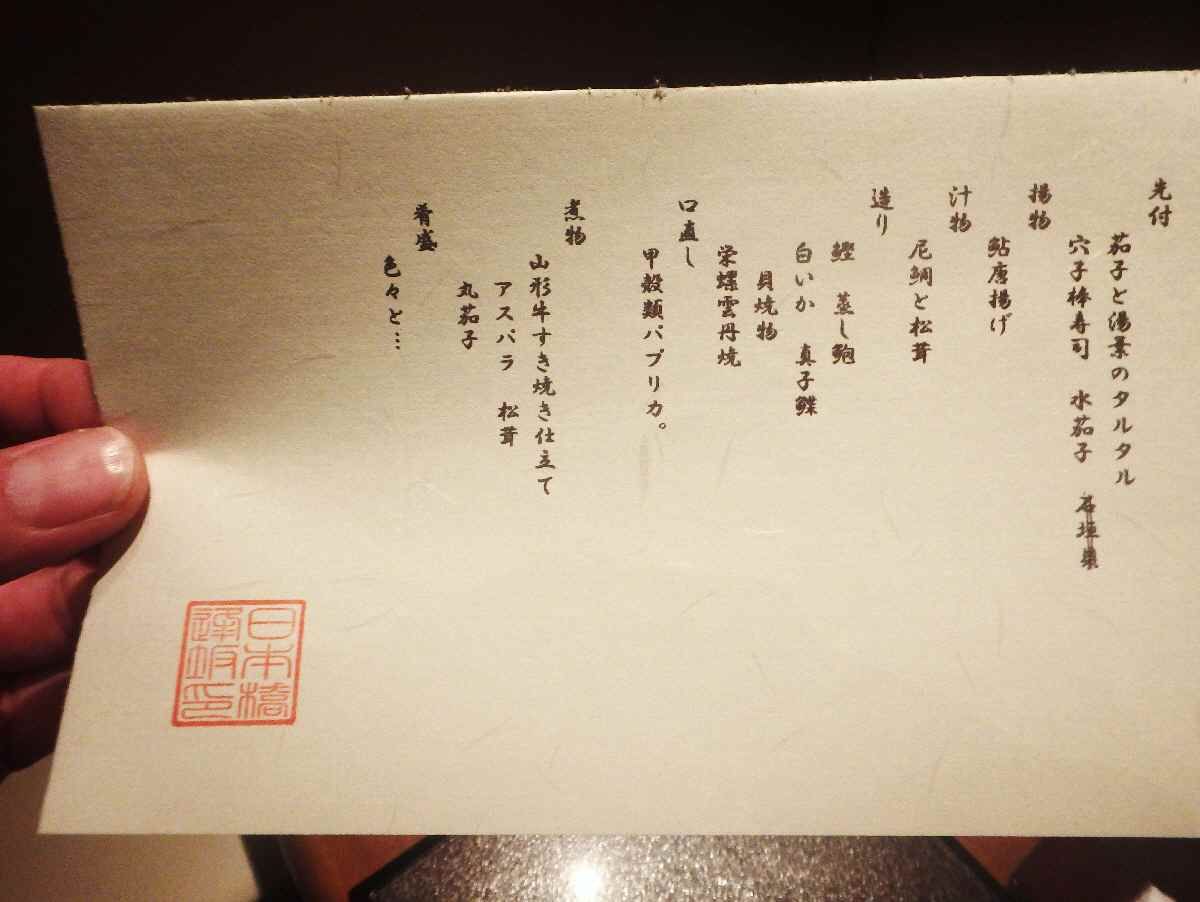 先付
茄子と湯葉のタルタル
穴子棒寿司　水茄子　石垣巣
揚物
鮎唐揚げ
汁物
尼鯛と松茸
造り
鰹　蒸し鮑
白いか　真子鰈
貝焼物
栄螺雲丹焼
口直し
甲殻類パプリカ。
煮物
山形牛すき焼き仕立て
アスパラ　松茸
丸茄子
肴盛
色々と…
日本橋
逢坂印